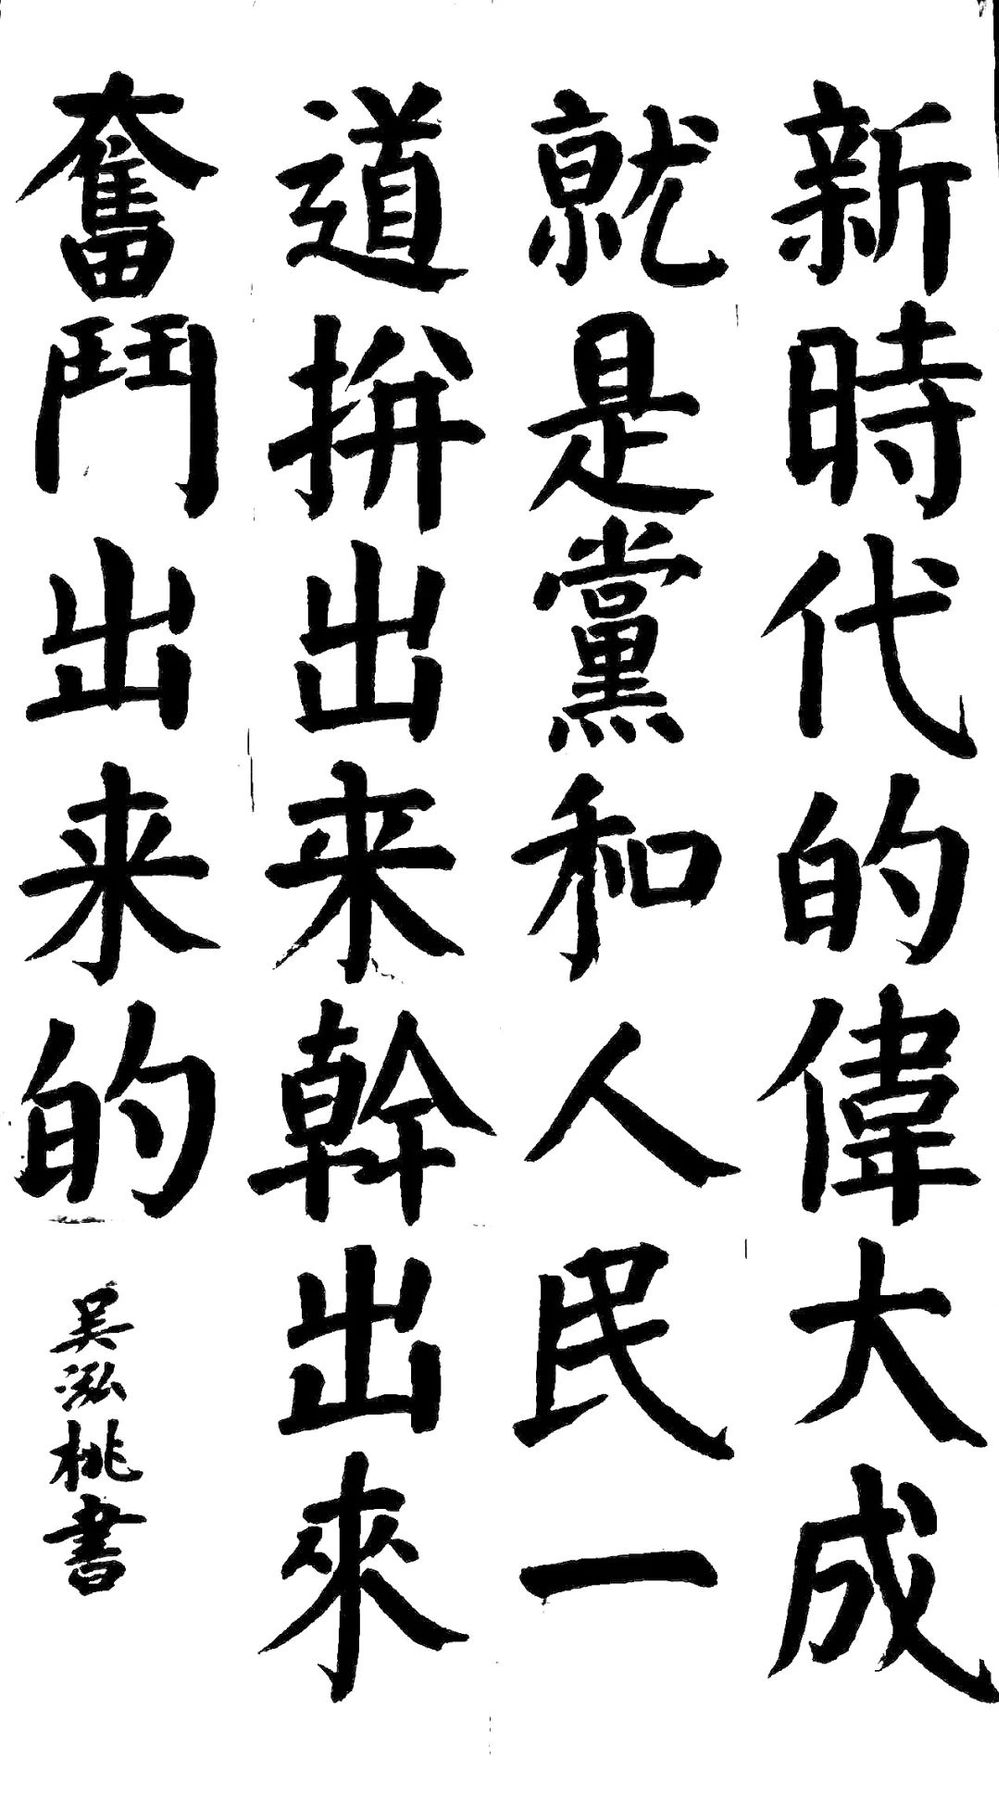 新時代的偉大成
就是黨和人民一
道拚出来幹出來
奮鬥出来的
吴泓桃書